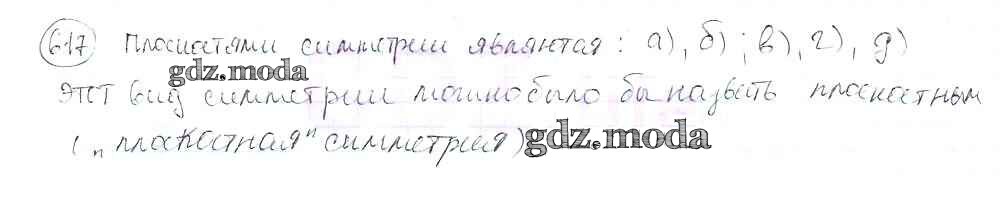 617 Плоскостями симметрии являются: а), б); в), г), д)
gdz.moda
этот вид симметрии можно было бы назвать плоскостным
("плоскостная" симметрия) gdz.moda